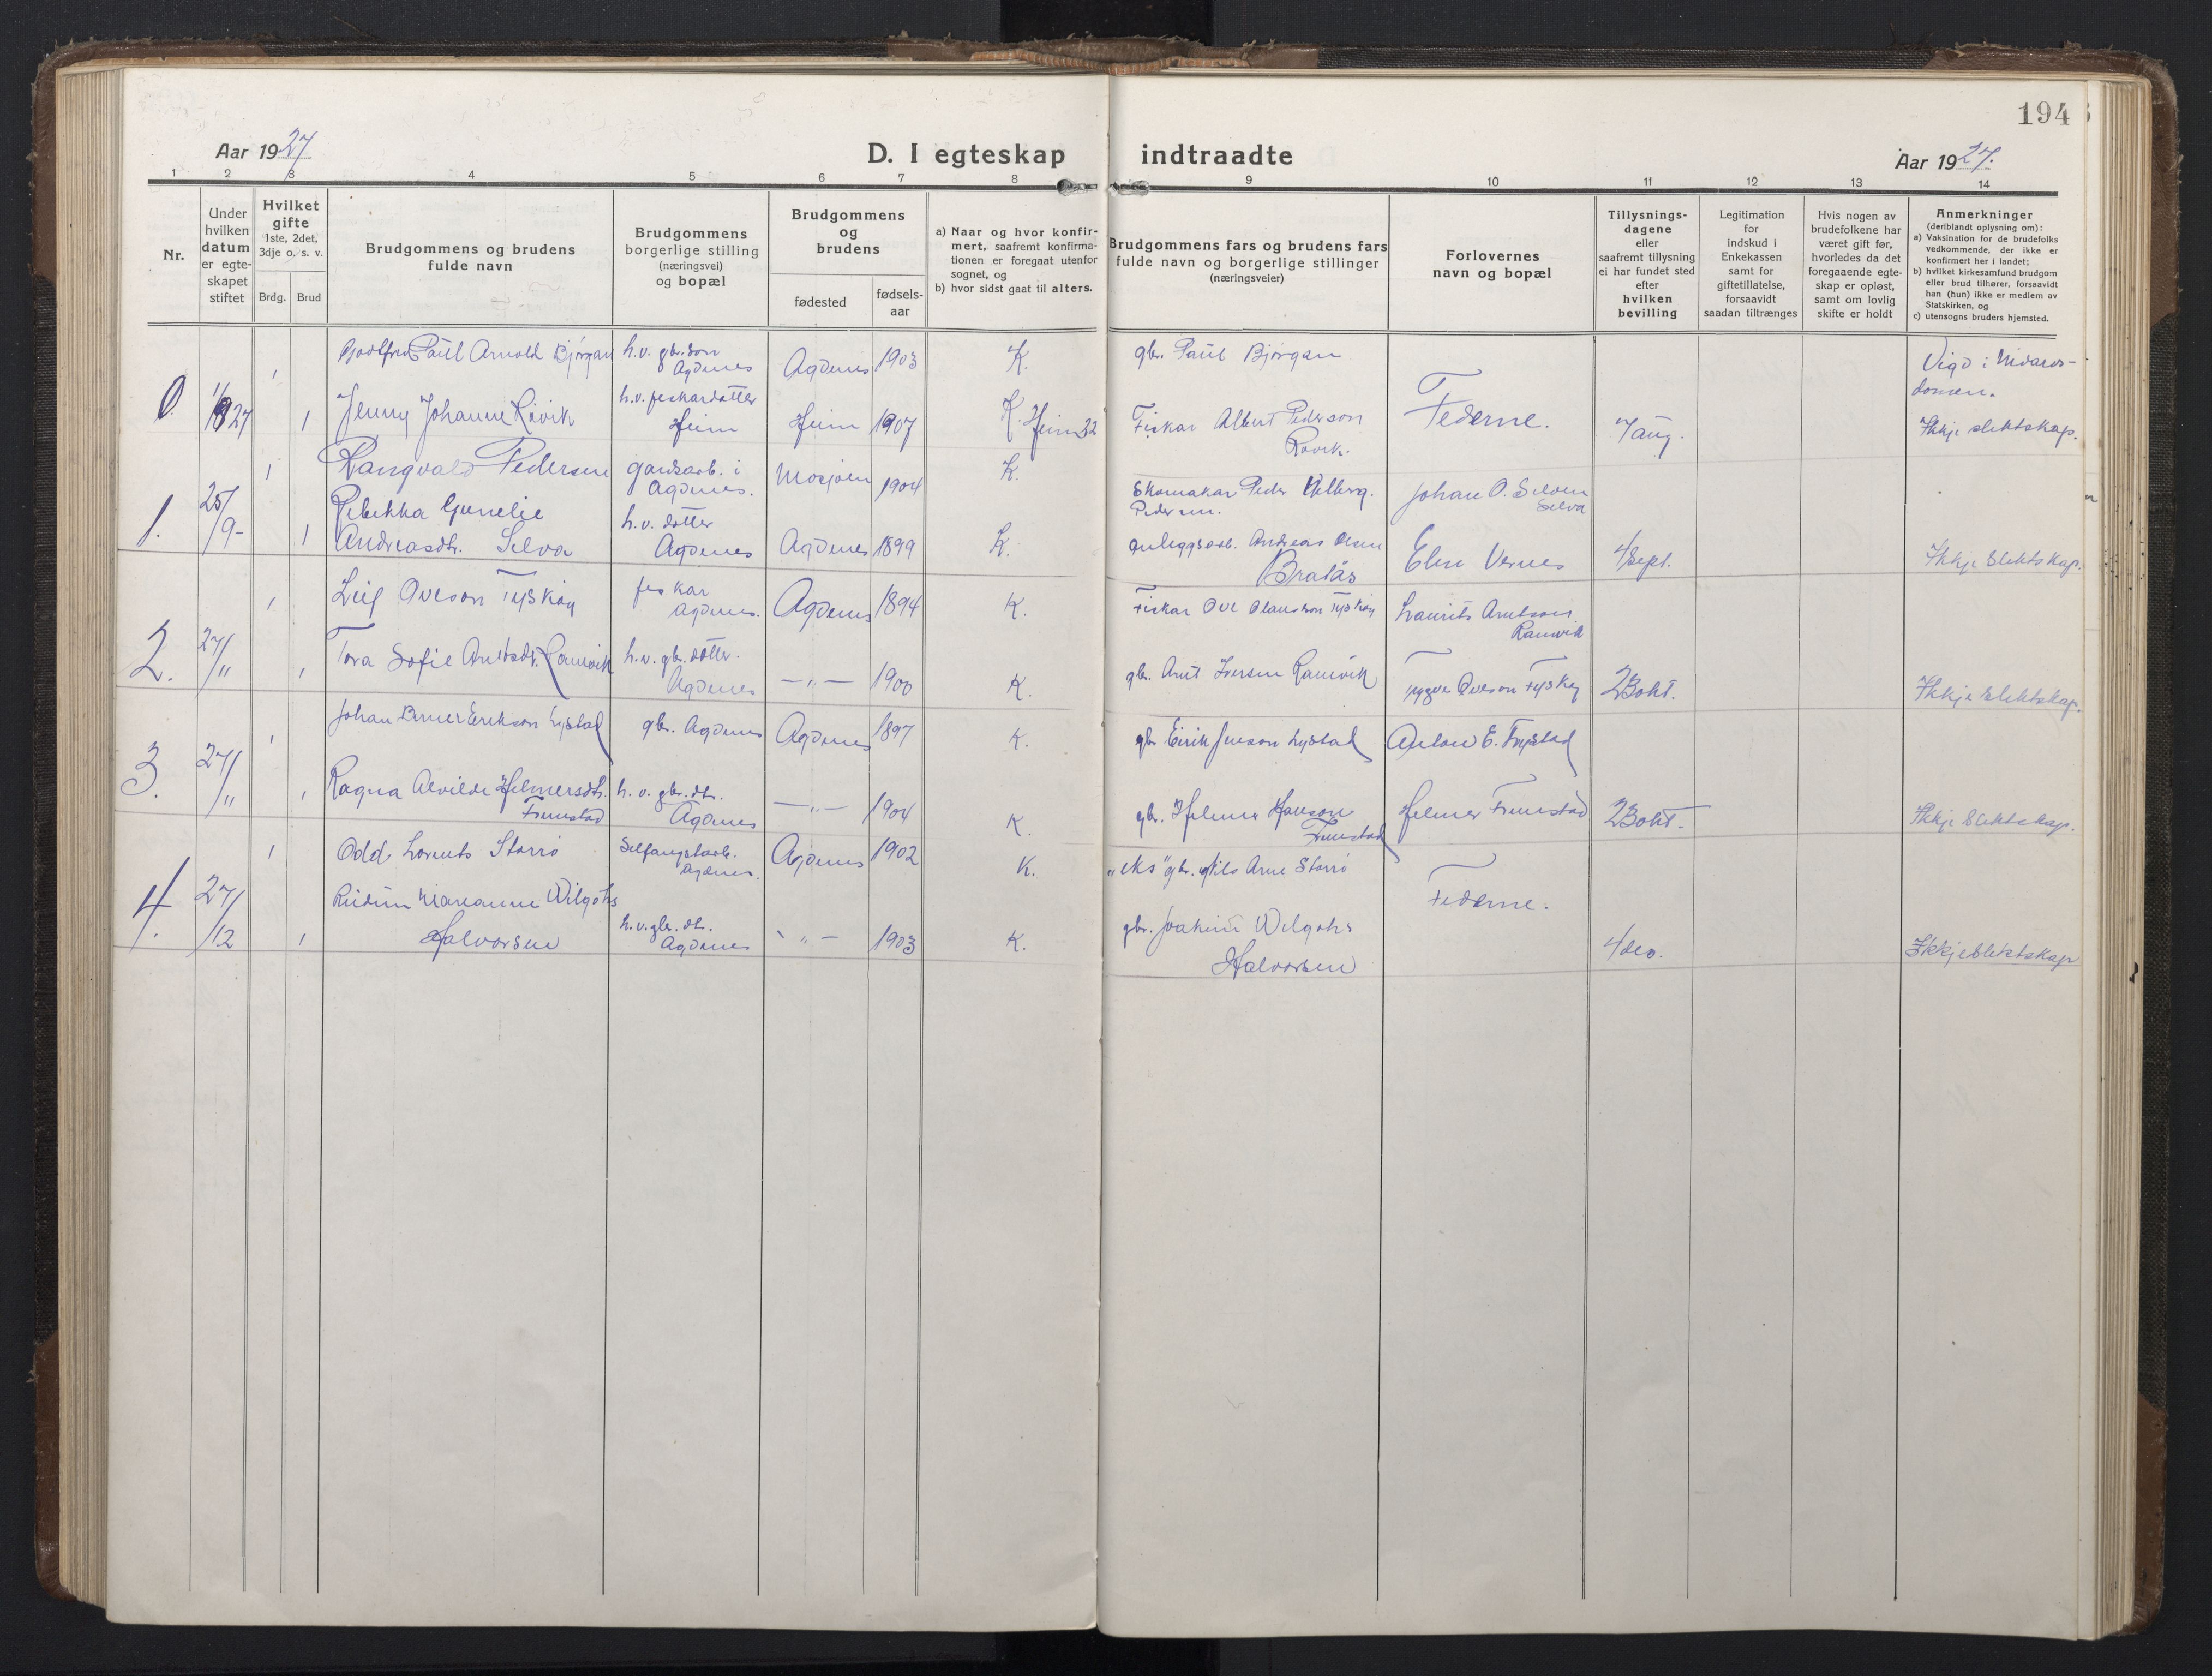 194
Aar 1927
D. I egteskap indtraadte
Aar 1927.
1 2 3 4 5 6 7 8 9 10 11 12 13 14
Nr.
Under
hvilken
datum
er egte-
skapet
stiftet
Hvilket
gifte
1ste, 2det,
3dje o. s. v.
Brdg. Brud
Brudgommens og brudens
fulde navn
Brudgommens
borgerlige stilling
(næringsvei)
og bopæl
Brudgommens
og
brudens
fødested
fødsels-
aar
a) Naar og hvor konfir-
mert, saafremt konfirma-
tionen er foregaat utenfor
sognet, og
b) hvor sidst gaat til alters.
Brudgommens fars og brudens fars
fulde navn og borgerlige stillinger
(næringsveier)
Forlovernes
navn og bopæl
Tillysnings-
dagene
eller
saafremt tillysning
ei har fundet sted
efter
hvilken
bevilling
Legitimation
for
indskud i
Enkekassen
samt for
giftetillatelse,
forsaavidt
saadan tiltrænges
Hvis nogen av
brudefolkene har
været gift før,
hvorledes da det
foregaaende egte-
skap er opløst,
samt om lovlig
skifte er holdt
Anmerkninger
(deriblandt oplysning om):
a) Vaksination for de brudefolks
vedkommende, der ikke er
konfirmert her i landet;
b) hvilket kirkesamfund brudgom
eller brud tilhører, forsaavidt
han (hun) ikke er medlem av
Statskirken, og
c) utensogns bruders hjemsted.
1 Paul Arnold Bjørgan h.v. gbr. son
Agdenes Agdenes 1903 K. gbr. Paul Bjørgan Vigd i Nidaros-
domen.
0 27 1 Jenny Johanne Rövik h.v. feskardotter
Heim Heim 1907 K. Heim 22 Fiskar Albert Pederson
Rövik. Federne. 7 aug. Ikkje slektskap.
1 Rangvald Pedersen gardsarb. i
Agdenes. Mosjøen 1904 K. Skomakar Peder
Pedersen. Johan O. Selven
Selva
1. 25/9- 1 Rebekka Gunelie
Andreasdtr. Selva h.v. dotter
Agdenes Agdenes 1899 K. anleggsarb. Andreas Olsen
Bratås Elen Vernes 4 Sept. Ikkje Slektskap.
1 Leif Oveson Tyskøy feskar
Agdenes. Agdenes 1894 K. Fiskar Ove Olausson Tyskøy Laurits Arntson
Ramvik
2. 27/" 1 Tora Sofie Arntsdtr. Ramvik h.v. gbr. dotter.
Agdenes —"— 1900 K. gbr. Arnt Iversen Ramvik Trygve Oveson Tyskøy 2 Bokt. Ikkje Slektskap.
1 Johan Erikson Lystad gbr. Agdenes Agdenes 1897 K. gbr Eirik Jenson Lystad Anton E.
3. 27/" 1 Ragna Alvilde Helmersdtr.
Fremstad h.v. gbr. dtr.
Agdenes —"— 1904 K. gbr. Helmer Hanson
Fremstad Helmer Fremstad 2 Bokt. Ikkje Slektskap.
1 Odd Lorents Storrø
Agdenes. Agdenes 1902 K. "eks" gbr. Nils Arne Storrø
4. 27/12 1 Marianne Wilgohs
Halvorsen h.v. gbr. dtr.
Agdenes "— 1903 K. gbr. Joakim Wilgohs
Halvorsen Federne. 4 des. Ikkje Slektskap